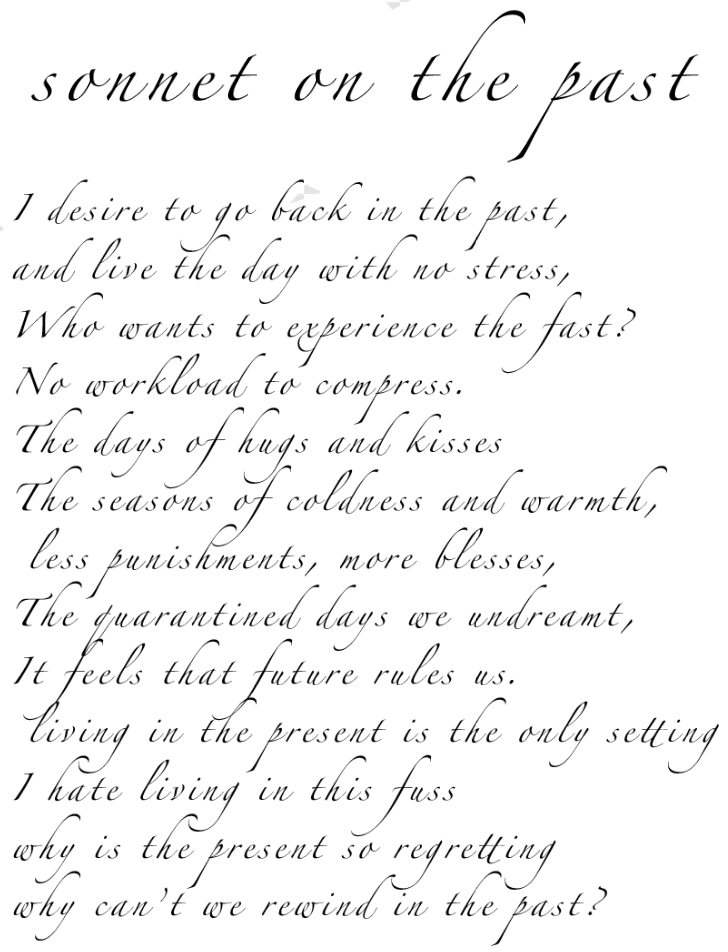 sonnet on the past
I desire to go back in the past,
and live the day with no stress,
Who wants to experience the fast?
No workload to compress.
The days of hugs and kisses
The seasons of coldness and warmth,
less punishments, more blesses,
The quarantined days we undreamt,
It feels that future rules us.
living in the present is the only setting
I hate living in this fuss
why is the present so regretting
why can't we rewind in the past?